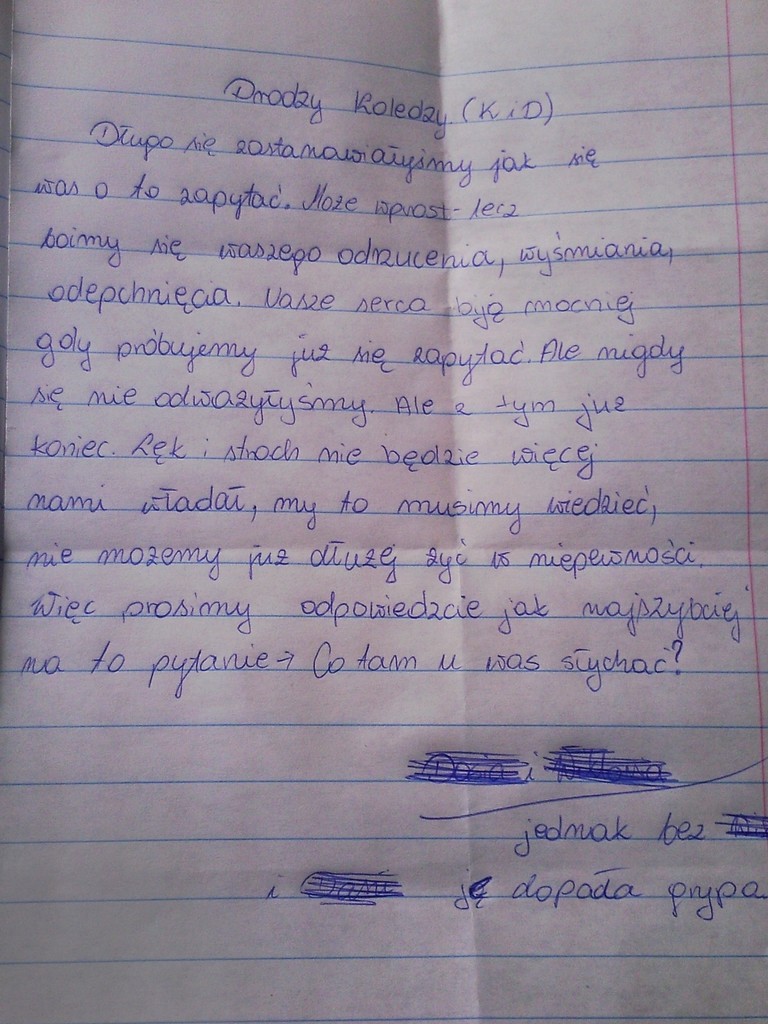 Drodzy Koledzy (K i D)
Długo się zastanawiałyśmy jak się
was o to zapytać. Może wprost - lecz
boimy się waszego odrzucenia, wyśmiania,
odepchnięcia. Nasze serca biją mocniej
gdy próbujemy już się zapytać. Ale nigdy
się nie odważyłyśmy. Ale z tym już
koniec. Lęk i strach nie będzie więcej
nami władał, my to musimy wiedzieć,
nie możemy już dłużej żyć w niepewności.
Więc prosimy odpowiedzcie jak najszybciej
na to pytanie → Co tam u was słychać?
i
jednak bez
i ją dopadła grypa